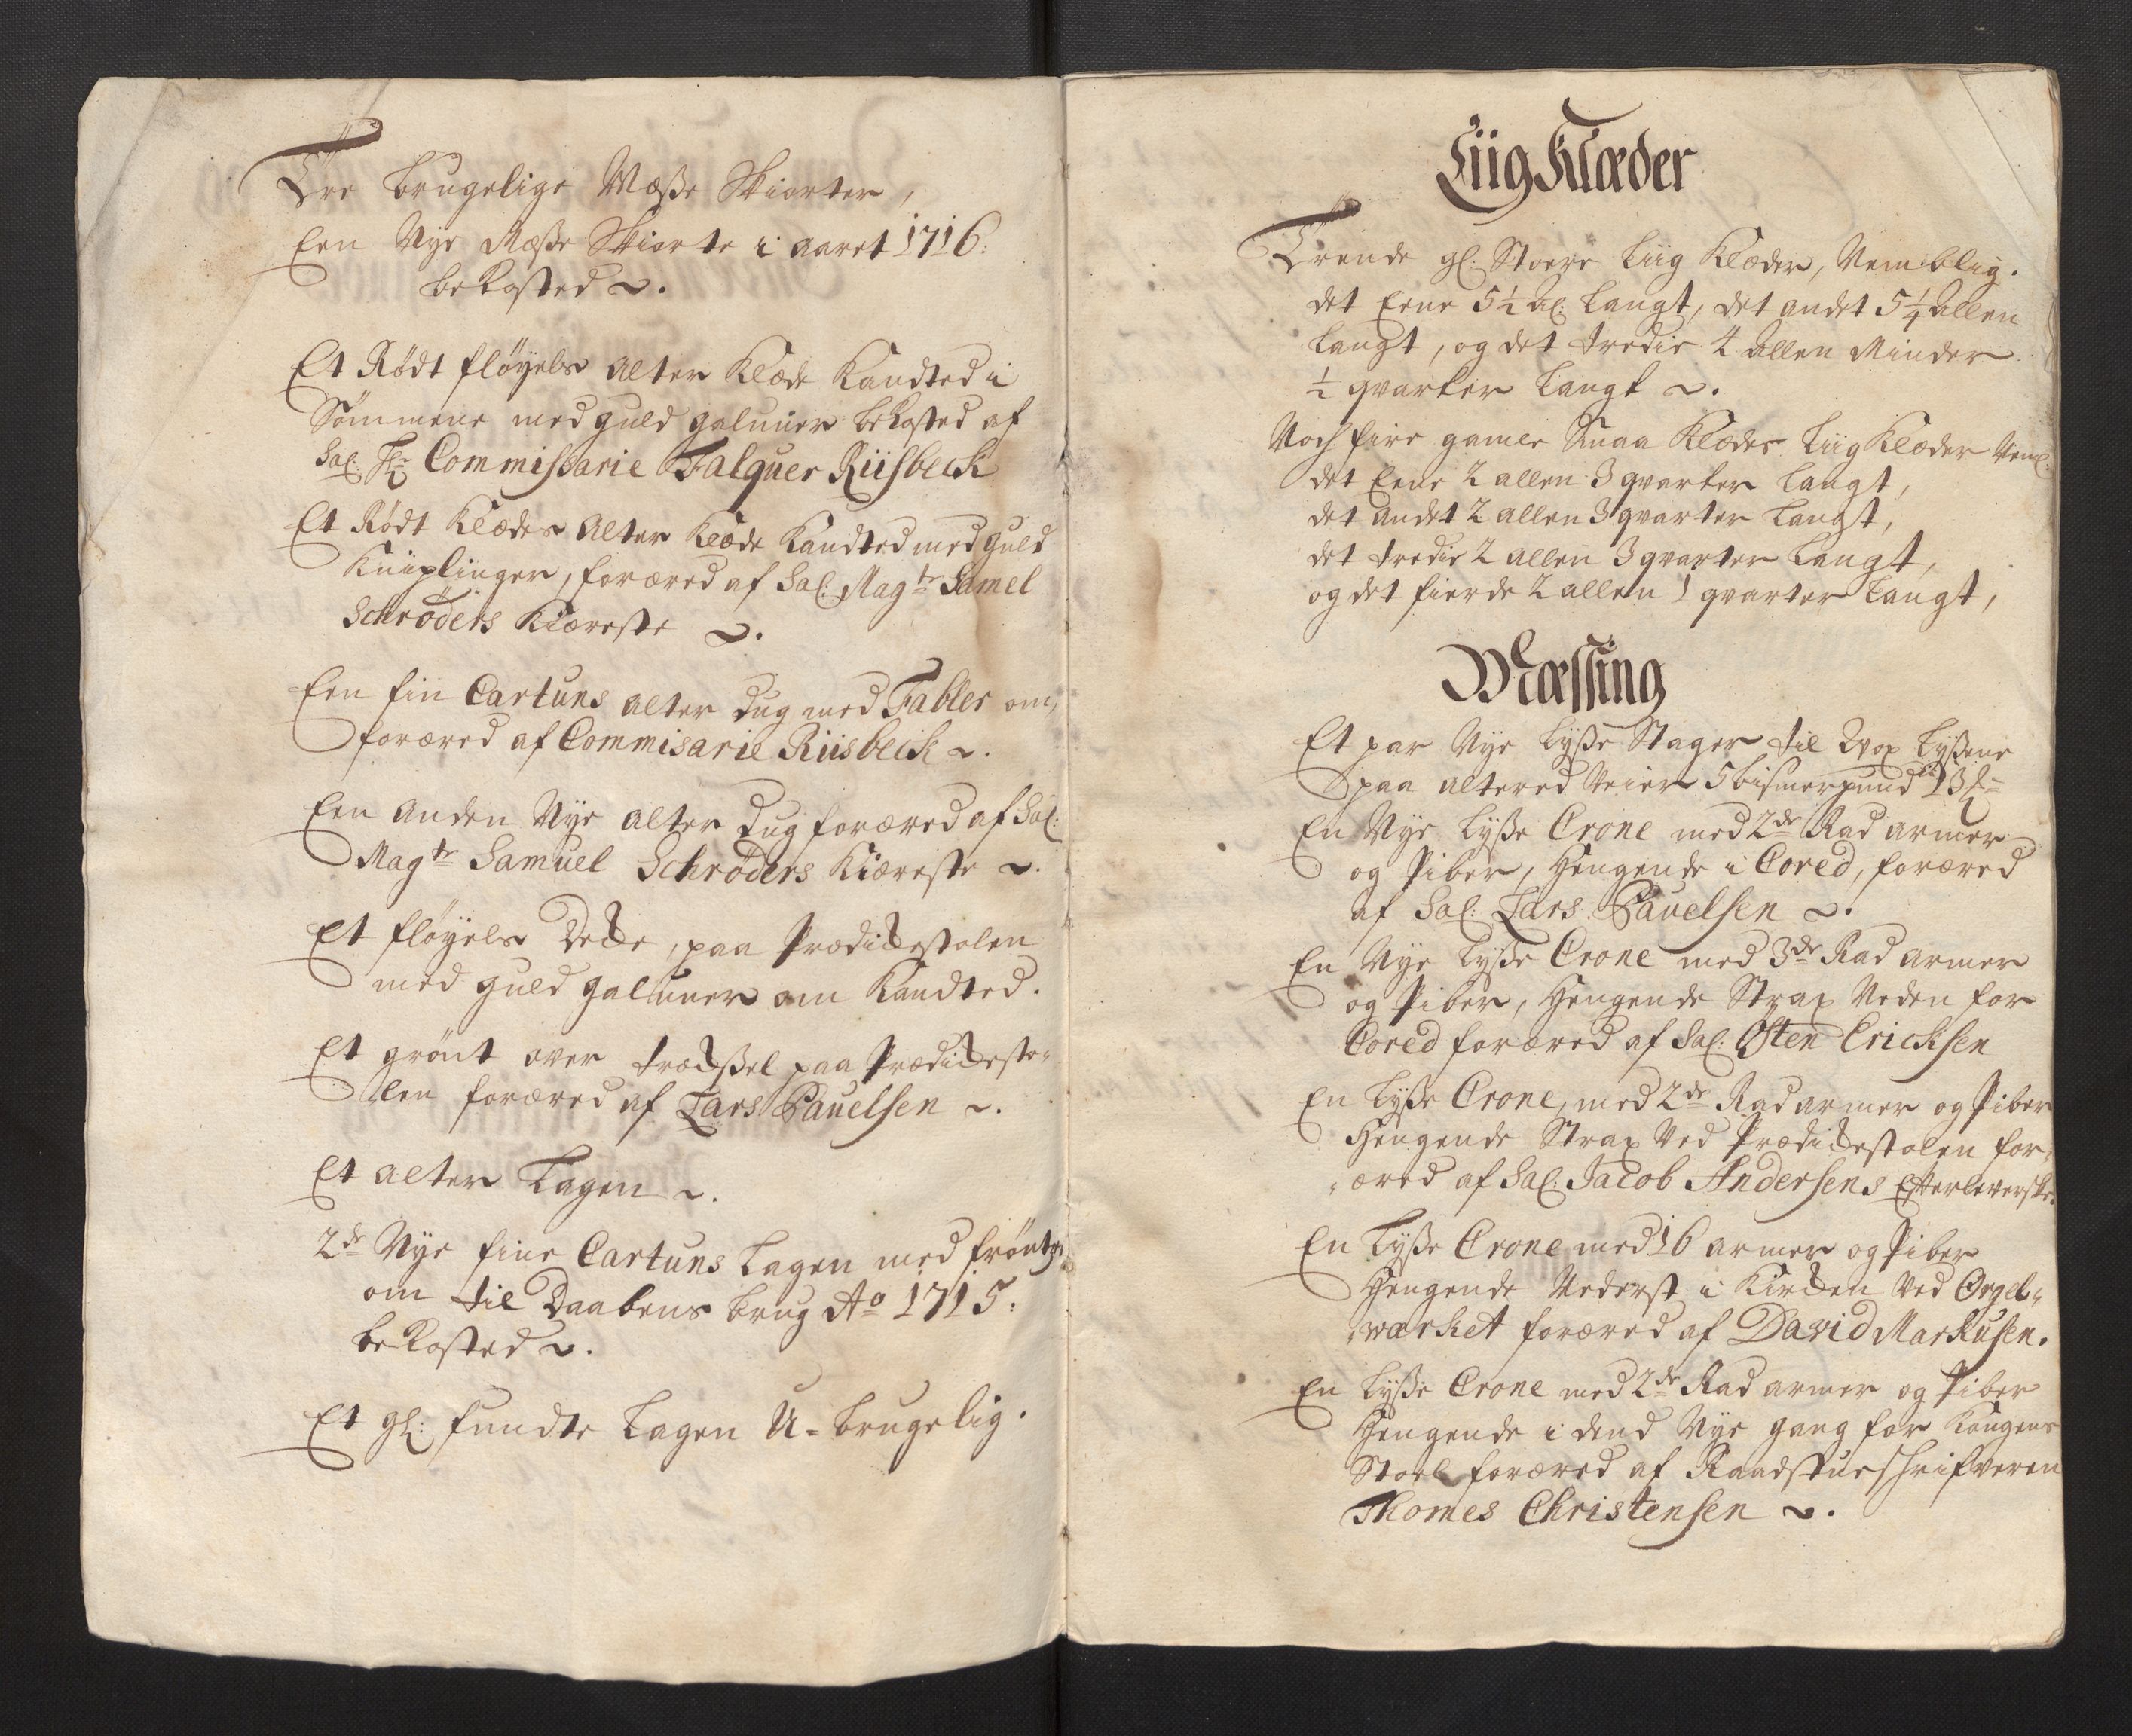 Tre brugelige Messe Skiorter,
Een Nye Messe Skiorte i aaret 1716:
bekosted ~.
Et Rødt fløyels alter Klæde Kandted i
Sømmene med guld galuner bekosted af
Sal: Hr Commissarie Falquer Riisbeck
Et Rødt Klædes Alter Klæde Kandted med guld
Kniplinger, foræred af Sal: Magtr Samel
Schrøders Kiæreste ~.
Een fin Cartuns alter dug med Tabler om,
foræred af Commisarie Riisbeck ~.
Een anden Nye alter dug foræred af Sal:
Magtr Samuel Schrøders Kiæreste ~.
Et fløyels Decke, paa Prædickestolen
med guld galuner om Kandted.
Et grønt over træckssel paa Prædickesto-
len foræred af Lars Pauelsen ~.
Et alter Lagen ~.
2de Nye fine Cartuns Lagen med frøntzer
om til Daabens brug Ao 1715:
bekosted ~.
Et gl: fundte Lagen U-brugelig.
Liig Klæder
Trende gl: Store Liig Klæder, Nemblig.
det Eene 5½ al: Langt, det andet 5¼ allen
Langt, og det tredie 4 allen Minder
½ qvarter Langt ~.
Noch fire gamle Smaa Klædes Liig Klæder Neml:
det Eene 2 allen 3 qvarter Langt,
det andet 2 allen 3 qvarter Langt,
det tredie 2 allen 3 qvarter Langt,
og det fierde 2 allen 1 qvarter Langt,
Messing
Et par Nye Lysse Stager til Vox Lyssene
paa altered Veier 5 bismerpund 3
En Nye Lysse Crone med 2de Rad armer
og Piber, Hengende i Cored, foræred
af Sal: Lars Pauelsen ~.
En Nye Lysse Crone med 3de Rad armer
og Piber, Hengende Strax Neden for
Cored foræred af Sal: Osten Ericksen
En Lysse Crone, med 2de Rad armer og Piber
Hengende Strax Ved Prædickestolen for-
æred af Sal: Jacob Andersens Efterleverske.
En Lysse Crone med 16 armer og Piber
Hengende Nederst i Kircken Ved Orgel-
værket foræred af David Markusen.
En Lysse Crone med 2de Rad armer og Piber
Hengende i dend Nye gang for Kongens
Stoel foræred af Raadstueschrifveren
Thomes Christensen ~.